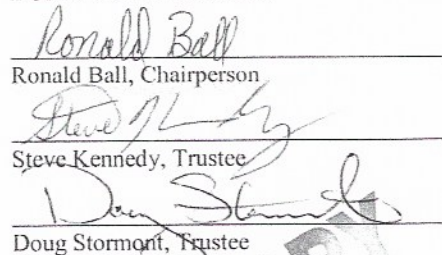 Ronald Ball
Ronald Ball, Chairperson
Steve Kennedy
Steve Kennedy, Trustee
Doug Stormont
Doug Stormont, Trustee